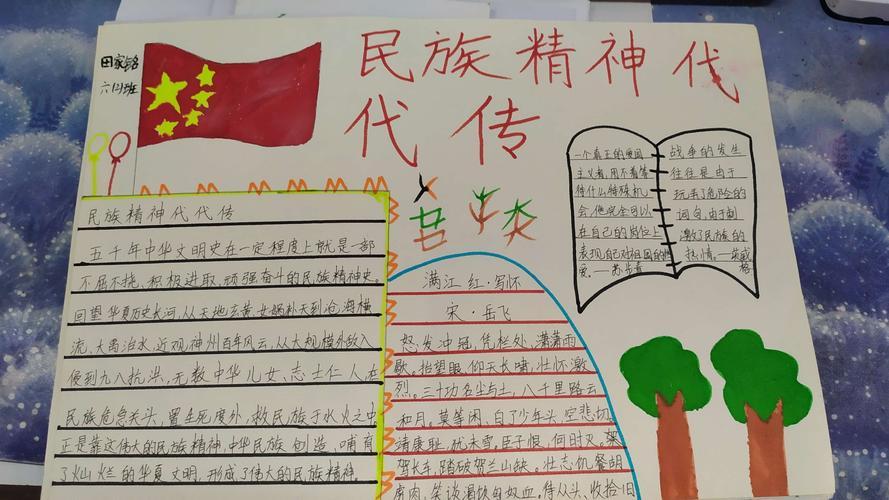 民族精神代
代传
田家铭
六(2)班
民族精神代代传
五千年中华文明史在一定程度上就是一部
不屈不挠、积极进取、顽强奋斗的民族精神史。
回望华夏历史长河,从天地玄黄、女娲补天到沧海横
流、大禹治水,近观神州百年风云,从大规模外敌入
侵到九八抗洪,无数中华儿女、志士仁人在
民族危急关头,置生死度外,救民族于水火之中
正是靠这伟大的民族精神,中华民族创造、哺育
了灿烂的华夏文明,形成了伟大的民族精神。
满江红·写怀
宋·岳飞
怒发冲冠,凭栏处、潇潇雨
歇。抬望眼、仰天长啸,壮怀激
烈。三十功名尘与土,八千里路云
和月。莫等闲、白了少年头,空悲切
靖康耻,犹未雪。臣子恨,何时灭。驾
驾长车,踏破贺兰山缺。壮志饥餐胡
虏肉,笑谈渴饮匈奴血。待从头、收拾旧
一个真正的爱国
主义者,用不着等
待什么特殊机
会,他完全可以
在自己的岗位上
表现自己对祖国的热
爱。——苏步青
战争的发生
往往是由于
玩弄了危险的
词句,由于刺
激了民族的
热情。——英威
格